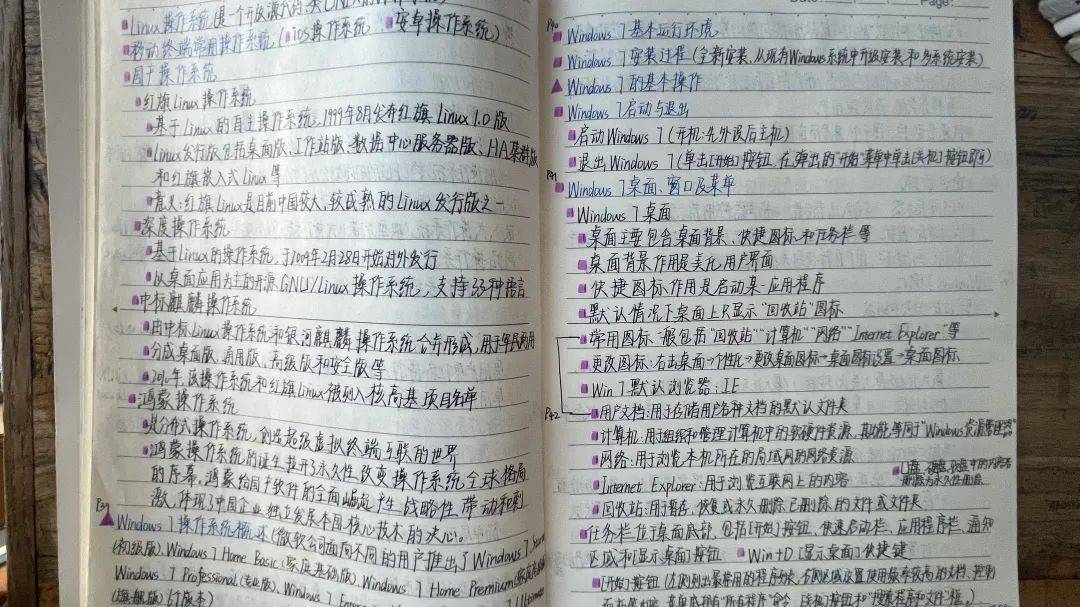 Linux操作系统(是一个开放源代码、类UNIX的操作系统)
移动终端常用操作系统(iOS操作系统 安卓操作系统)
国产操作系统
红旗Linux操作系统
基于Linux的自主操作系统,1999年8月发布红旗Linux 1.0版
Linux发行版包括桌面版、工作站版、数据中心服务器版、HA集群版
和红旗嵌入式Linux等
意义:红旗Linux是目前中国较大、较成熟的Linux发行版之一
深度操作系统
基于Linux的操作系统,于2004年2月28日开始对外发行
以桌面应用为主的开源GNU/Linux操作系统,支持33种语言
中标麒麟操作系统
由中标Linux操作系统和银河麒麟操作系统合并形成,用于军民两用
分成桌面版、通用版、高级版和安全版等
2010年,该操作系统和红旗Linux被列入核高基项目名单
鸿蒙操作系统
是分布式操作系统,创造超级虚拟终端互联的世界
鸿蒙操作系统的诞生拉开了永久性改变操作系统全球格局
的序幕,鸿蒙给国产软件的全面崛起产生战略性带动和刺
激,体现了中国企业独立发展本国核心技术的决心。
P39
Windows 7操作系统概述(微软公司面向不同的用户推出了Windows 7
(初级版)、Windows 7 Home Basic(家庭基础版)、Windows 7 Home Premium
Windows 7 Professional(专业版)、Windows 7
(旗舰版)6个版本)
P40
Windows 7基本运行环境
Windows 7安装过程(全新安装、从现有Windows系统中升级安装和多系统安装)
Windows 7的基本操作
Windows 7启动与退出
启动Windows 7(开机:先外设后主机)
退出Windows 7(单击[开始]按钮,在弹出的"开始"菜单中单击[关机]按钮即可)
P41
Windows 7桌面、窗口及菜单
Windows 7桌面
桌面主要包含桌面背景、快捷图标和任务栏等
桌面背景作用是美化用户界面
快捷图标作用是启动某一应用程序
默认情况下桌面上只显示"回收站"图标
常用图标一般包括"回收站""计算机""网络""Internet Explorer"等
更改图标:右击桌面→个性化→更改桌面图标→桌面图标设置→桌面图标
Win 7默认浏览器:IE
P42
用户文档:用于存储用户各种文档的默认文件夹
计算机:用于组织和管理计算机中的软硬件资源,其功能等同于"Windows资源管理器"
网络:用于浏览本机所在的局域网的网络资源
Internet Explorer:用于浏览互联网上的内容
U盘、硬盘、软盘中的内容
删除为永久性删除
回收站:用于暂存、恢复或永久删除已删除的文件或文件夹
任务栏位于桌面底部,包括[开始]按钮、快速启动栏、应用程序栏、通知
区域和[显示桌面]按钮 Win+D [显示桌面]快捷键
[开始]按钮(左侧列出最常用的程序列表,右侧区域设置使用频率较高的文档、控制